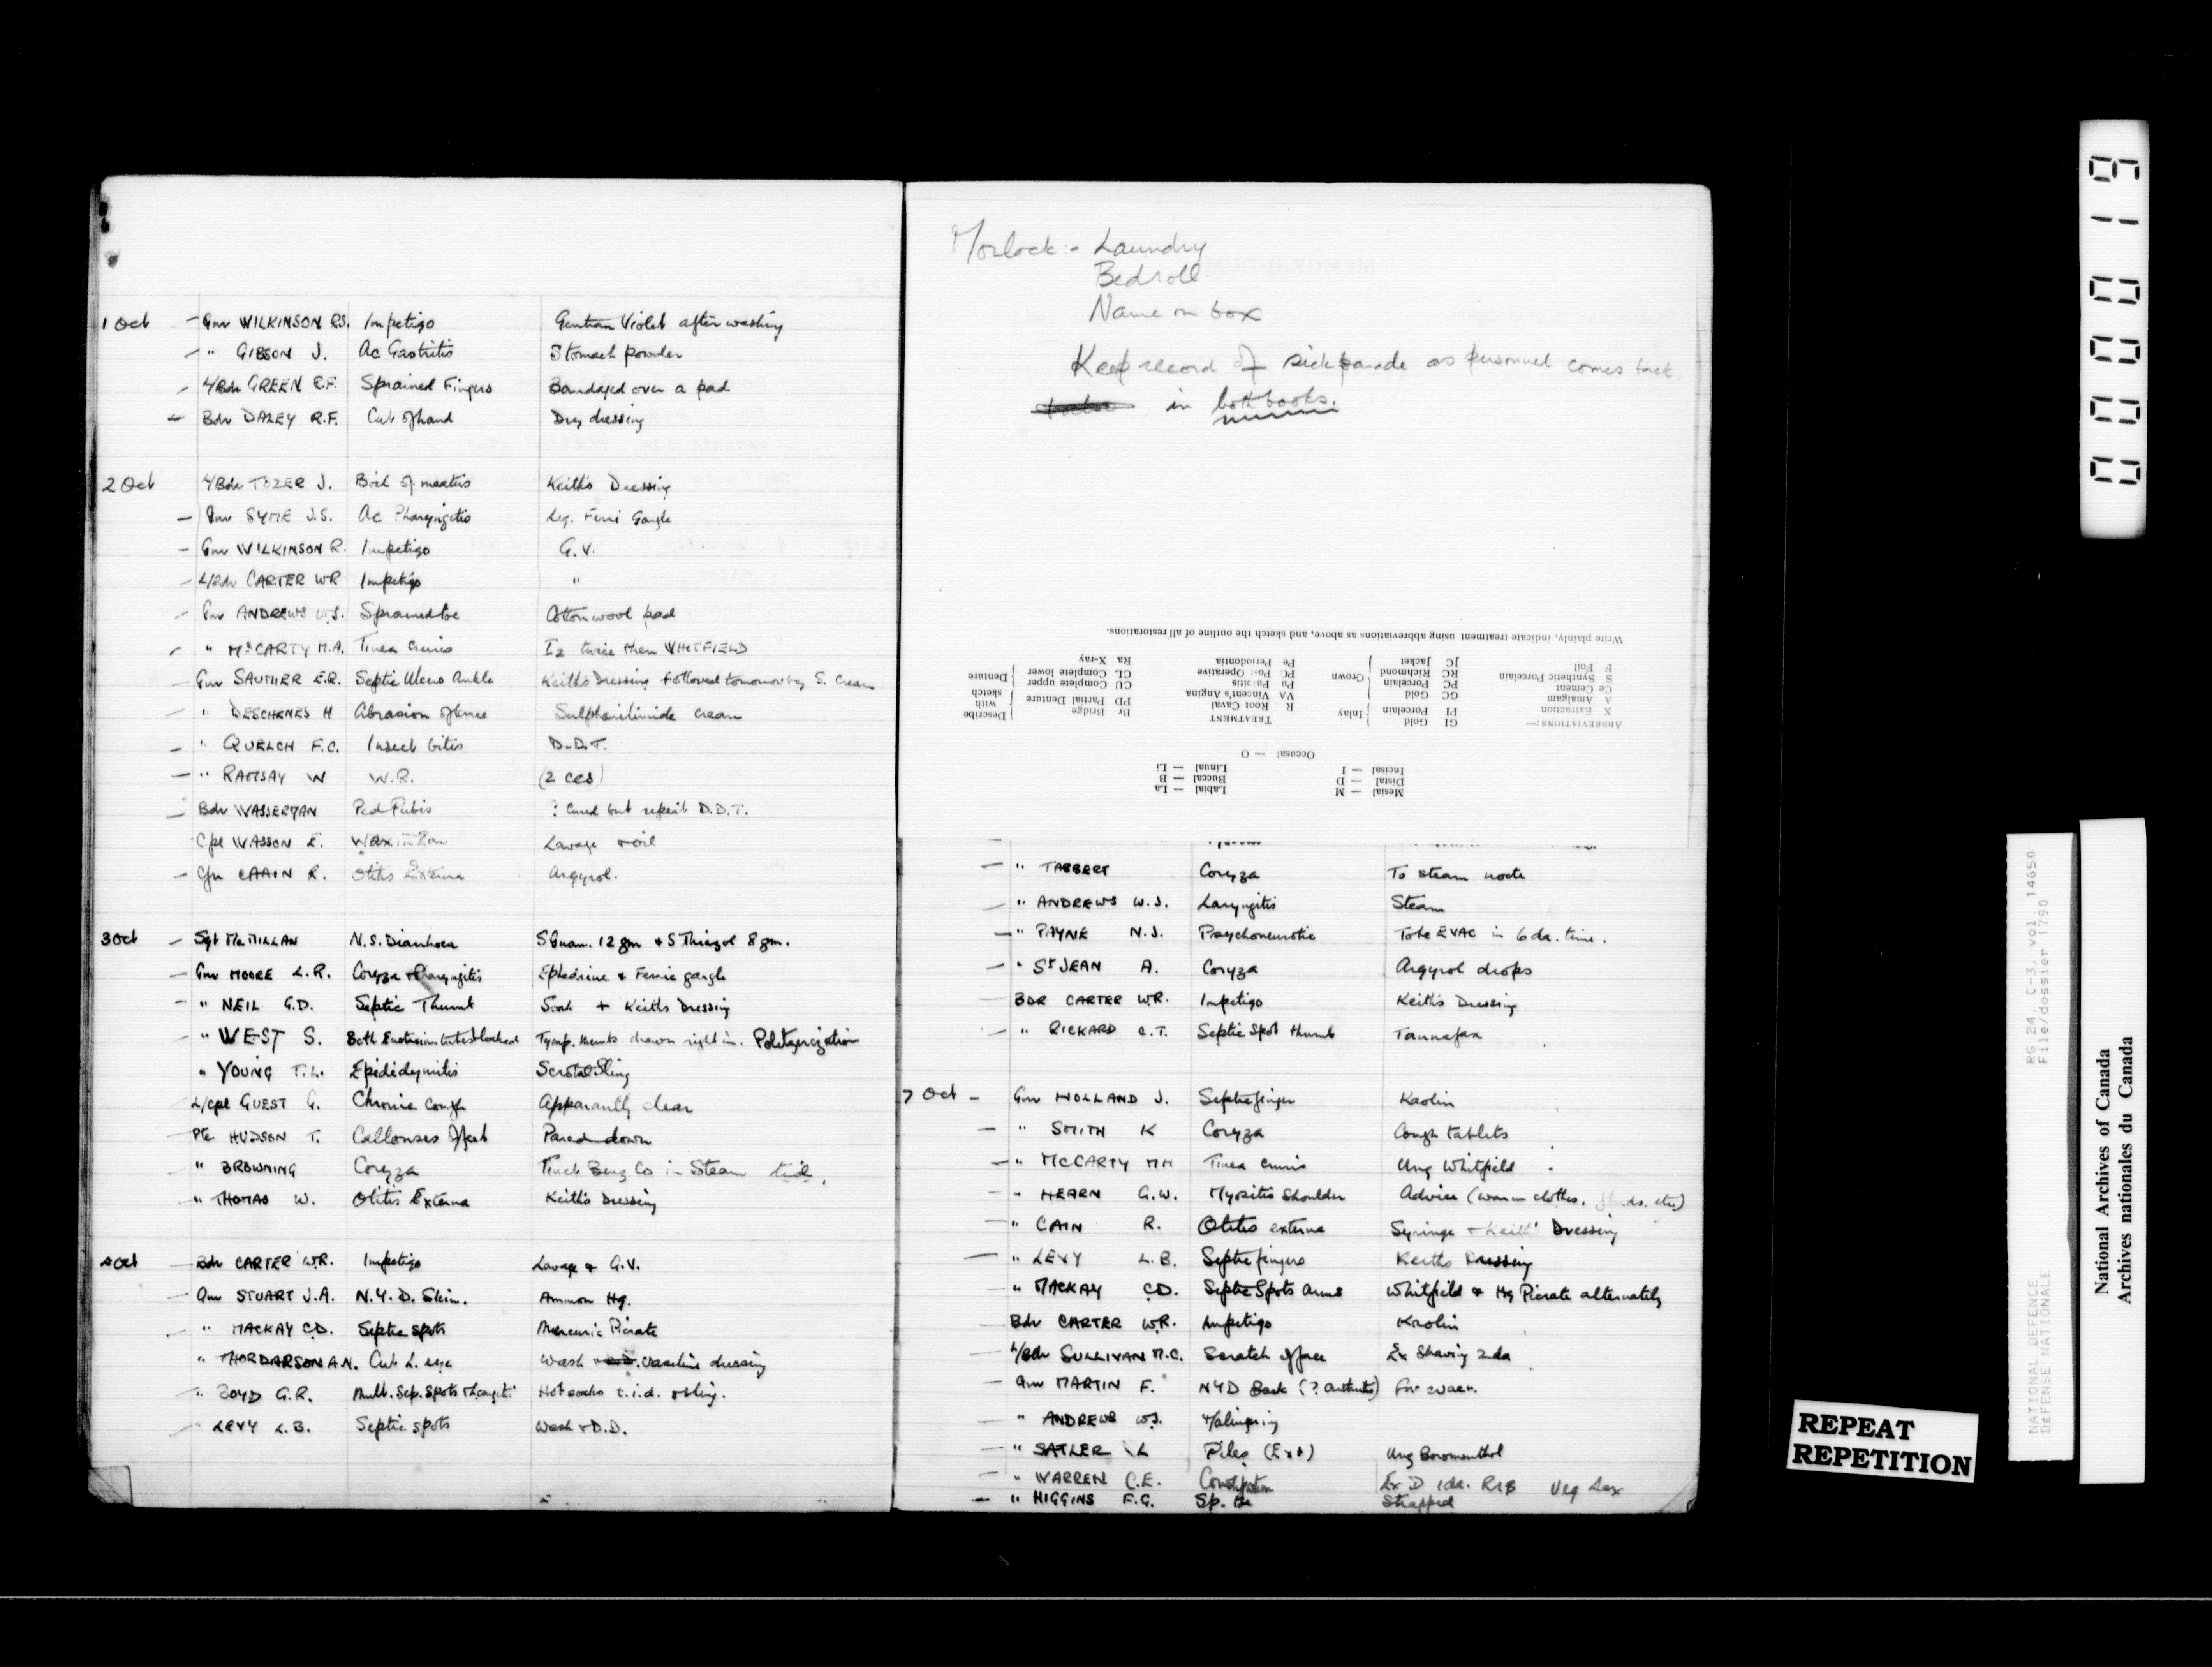 1 Oct — Gnr WILKINSON R.S. Impetigo Gentian Violet after washing
— " GIBSON J. Ac Gastritis Stomach powder
— L/Bdr GREEN R.F. Sprained Fingers Bandaged over a pad
— Bdr DALEY R.F. Cut of hand Dry dressing
2 Oct L/Bdr TOZER J. Boil of meatus Keith's Dressing
— Gnr SYME J.S. Ac Pharyngitis Liq. Ferri Gargle
— Gnr WILKINSON R. Impetigo G.V.
— L/Bdr CARTER WR Impetigo "
— Gnr ANDREWS W.J. Sprained toe Cotton wool pad
— " McCARTY M.A. Tinea Cruris I2 twice then WHITFIELD
— Gnr SAUTHER E.R. Septic Ulcus Ankle Keith's Dressing followed tomorrow by S. Cream
— " DESCHENES H Abrasion of knee Sulphanilimide cream
— " QUELCH F.C. Insect bites D.D.T.
— " RAMSAY W W.R. (2 ccs)
— Bdr WASSERMAN Ped Pubis ? Cured but repeat D.D.T.
Cpl WASSON E. Wax in Ear Lavage + oil
— Gnr CAAIN R. Otitis Externa Argyrol.
3 Oct — Sgt McMILLAN N.S. Diarrhoea S Guan. 12 gm + S Thiazol 8 gm.
— Gnr MOORE L.R. Coryza + Pharyngitis Ephedrine + Ferric gargle
— " NEIL G.D. Septic Thumb Soak + Keith's Dressing
— " WEST S. Both Eustacian tubes blocked Tymp. memb. drawn right in. Politzerization
" YOUNG T.L. Epididymitis Scrotal Sling
— L/Cpl GUEST G. Chronic cough Apparantly clear
— Pte HUDSON T. Callouses of feet Pared down
— " BROWNING Coryza Tinct Benz Co in Steam t.i.d.
— " THOMAS W. Otitis Externa Keith's Dressing
4 Oct — Bdr CARTER W.R. Impetigo Lavage + G.V.
— Gnr STUART J.A. N.Y.D. Skin. Ammon Hg.
— " MACKAY C.D. Septic spots Mercuric Picrate
" THORDARSON A.N. Cut L. eye Wash Vaseline dressing
— " BOYD G.R. Mult. Sep. spots Hot soaks t.i.d. + sling.
— " LEVY L.B. Septic spots Wash + D.D.
Morlock :- Laundry
Bedroll
Name on box
Keep record of sick parade as personnel comes back
in both books.
Write plainly, indicate treatment using abbreviations as above, and sketch the outline of all restorations.
ABBREVIATIONS:—
X Extraction
A Amalgam
Ce Cement
S Synthetic Porcelain
F Foil
GI Gold
PI Porcelain
Inlay
GC Gold
PC Porcelain
RC Richmond
JC Jacket
Crown
TREATMENT
R Root Caval
VA Vincent's Angina
Pu Pulpitis
PC Post Operative
Pe Periodontia
Br Bridge
PD Partial Denture
CU Complete upper
CL Complete lower
Ra X-ray
Describe with sketch
Denture
Mesial — M
Distal — D
Incisal — I
Labial — La
Buccal — B
Linual — Li
Occusal — O
— " TABBERT Coryza To steam nocte
— " ANDREWS W.J. Laryngitis Steam
— " PAYNE N.J. Psychoneurotic To be EVAC in 6 da. time.
— " St JEAN A. Coryza Argyrol drops
BDR CARTER WR. Impetigo Keith's Dressing
— " RICKARD C.T. Septic Spot thumb Tannafax
7 Oct — Gnr HOLLAND J. Septic finger Kaolin
— " SMITH K Coryza Cough tablets
— " McCARTY MM Tinea Cruris Ung Whitfield
— " HEARN G.W. Myositis Shoulder Advice (warm clothes, etc)
— " CAIN R. Otitis externa Syringe + Keith' Dressing
— " LEVY L.B. Septic fingers Keiths Dressing
" MACKAY CD. Septic Spots arms Whitfield & Hg Picrate alternately
Bdr CARTER W.R. Impetigo Kaolin
L/Bdr SULLIVAN M.C. Scratch of face Ex Shaving 2 da
— Gnr MARTIN F. NYD Back (? arthritis) for evacn.
— " ANDREWS WJ. Malingering
— " SATLER L Piles (Ext) Ung Boromenthol
— " WARREN C.E. Constipation Ex D 1 da. Veg Lax
— " HIGGINS F.G. Sp. toe Strapped
000019
RG 24, C-3, vol 14650
File/dossier 1790
NATIONAL DEFENCE
DÉFENSE NATIONALE
National Archives of Canada
Archives nationales du Canada
REPEAT
REPETITION